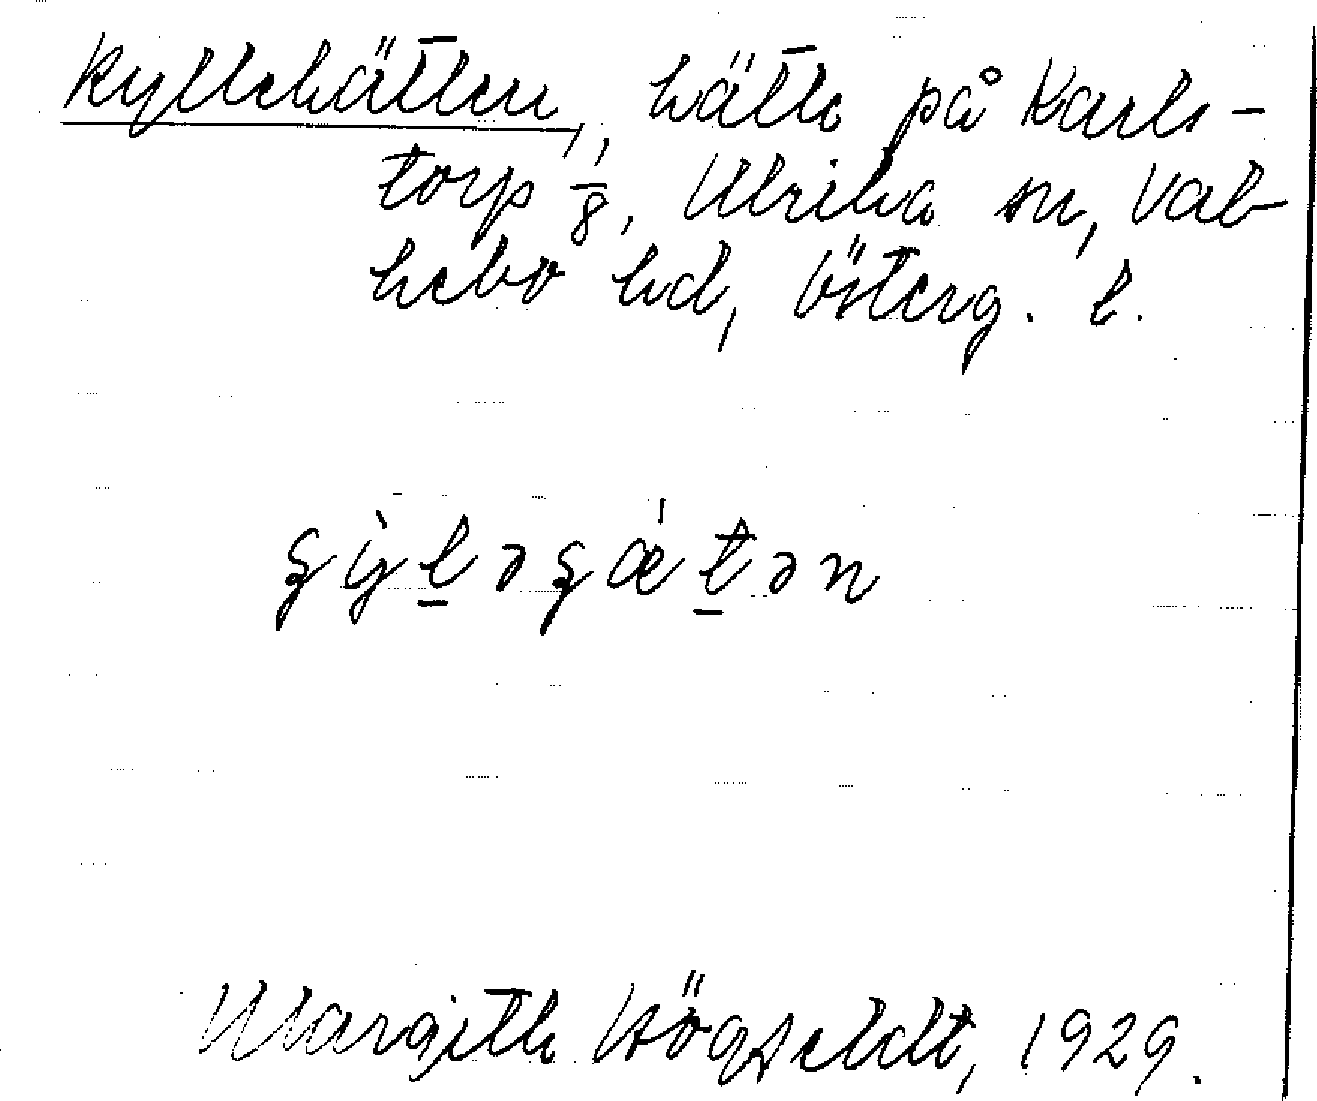 Kyllekätten, kätte på Karls-
torp 1/8, Ulrika sn, Val
kebo hd, Österg. l.
ȿỳl̲əȿǽt̲ən
Margith Högfeldt, 1929.